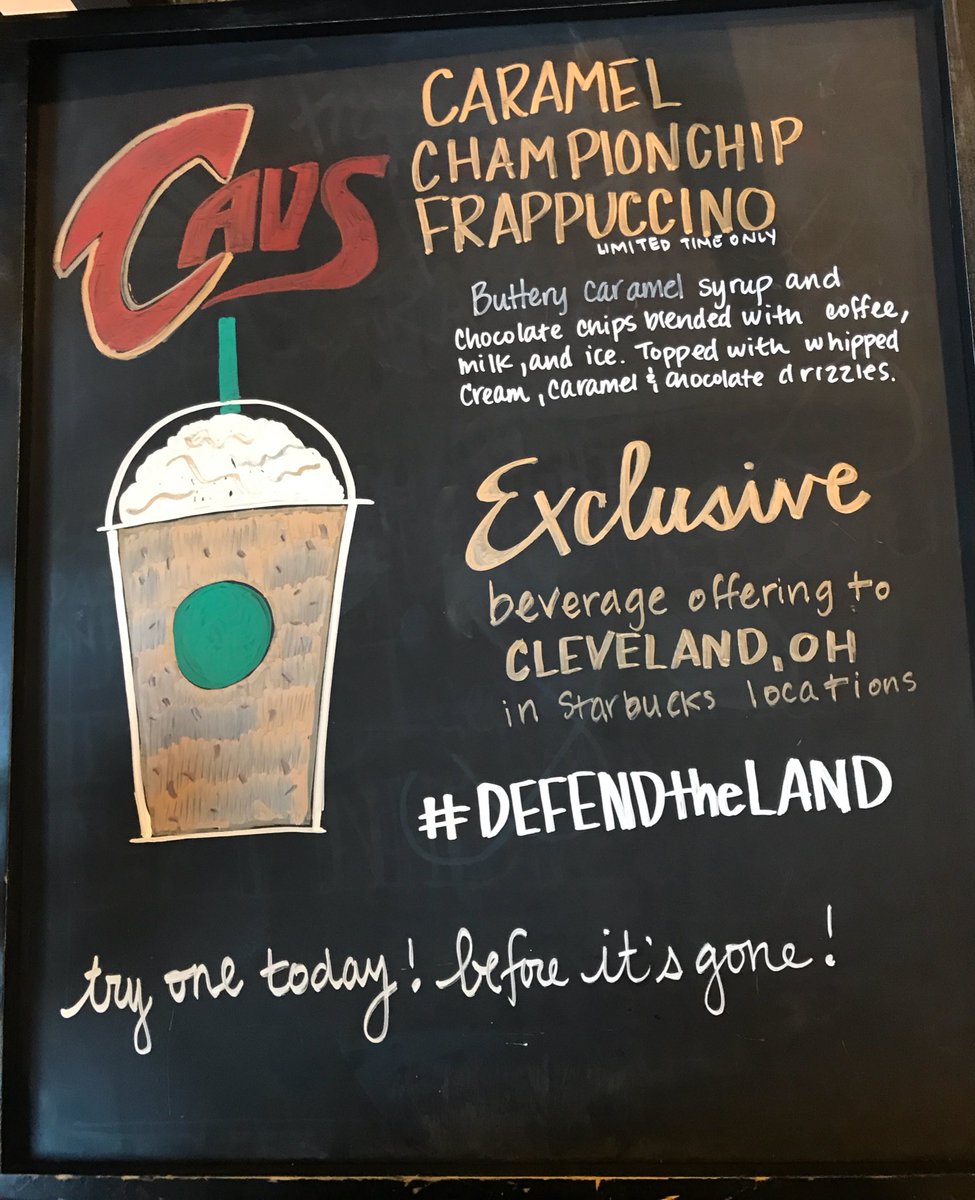 CAVS
CARAMEL
CHAMPIONCHIP
FRAPPUCCINO
LIMITED TIME ONLY
Buttery caramel syrup and
chocolate chips blended with coffee,
milk, and ice. Topped with whipped
cream, caramel & chocolate drizzles.
Exclusive
beverage offering to
CLEVELAND, OH
in Starbucks locations
#DEFENDtheLAND
try one today! before it's gone!